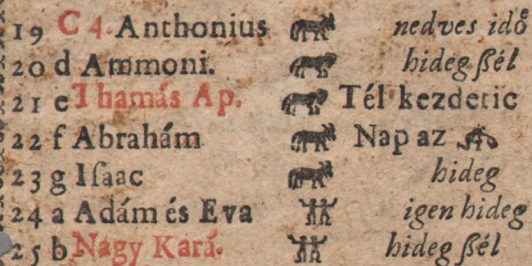 19 C 4. Anthonius nedves idoͤ
20 d Ammoni. hideg ßél
21 e Thamás Ap. Tél kezdetie
22 f Abrahám Nap az
23 g Iſaac hideg
24 a Adám és Eva igen hideg
25 b Nagy Kará. hideg ßél